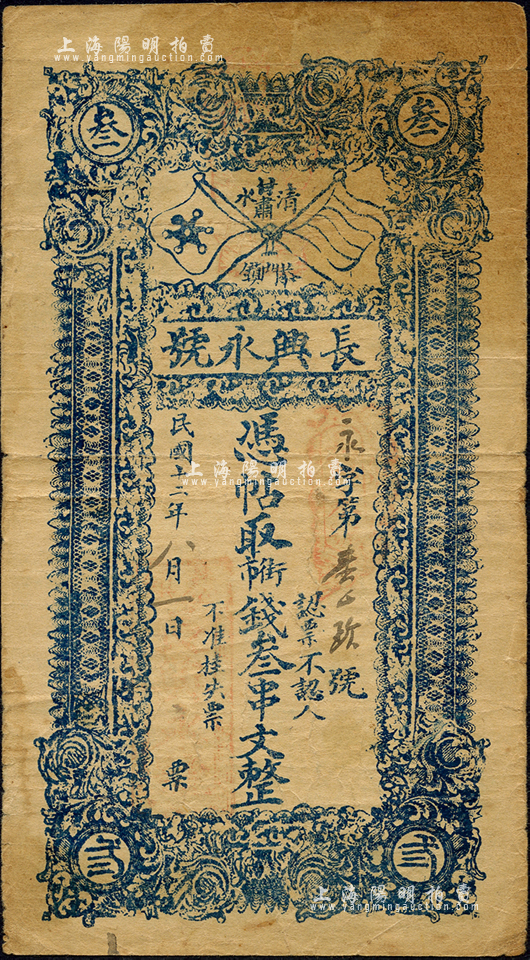 上海陽明拍賣
www.yangmingauction.com
叁
叁
甘肅
清水
長興永號
永字第
號
認票不認人
憑帖取街市錢叁串文整
不准挂失票
民國十二年八月一日
票
上海陽明拍賣
www.yangmingauction.com
弎
弎
上海陽明拍賣
www.yangmingauction.com